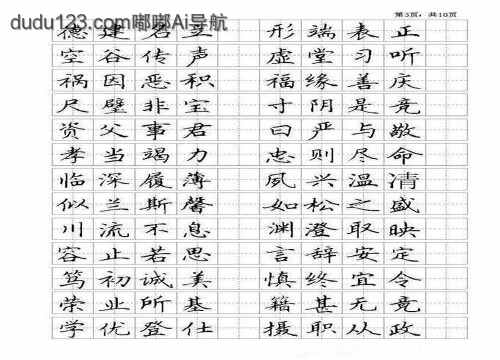 dudu123.com嘟嘟Ai导航
第3页，共10页
德建名立 形端表正
空谷传声 虚堂习听
祸因恶积 福缘善庆
尺璧非宝 寸阴是竞
资父事君 曰严与敬
孝当竭力 忠则尽命
临深履薄 夙兴温凊
似兰斯馨 如松之盛
川流不息 渊澄取映
容止若思 言辞安定
笃初诚美 慎终宜令
荣业所基 籍甚无竟
学优登仕 摄职从政